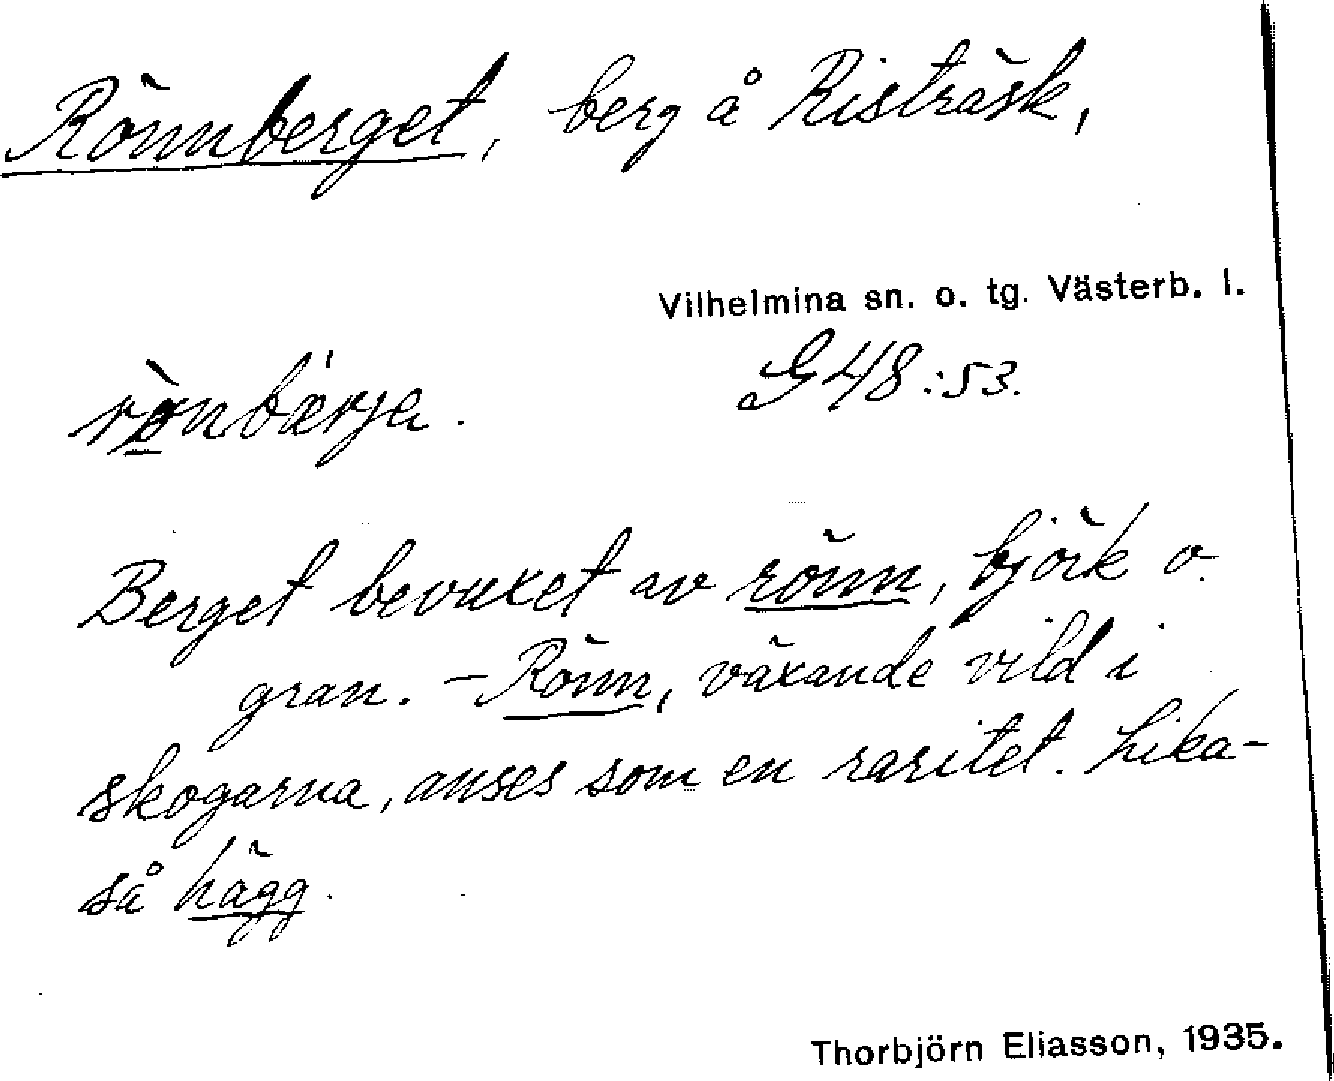 Rönnberget, berg å Risträsk,
Vilhelmina sn. o. tg. Västerb. l.
G48:53.
Berget bevuxet av rönn, björk o.
gran. – Rönn, växande vild i
skogarna, anses som en raritet. Lika-
så hägg.
Thorbjörn Eliasson, 1935.